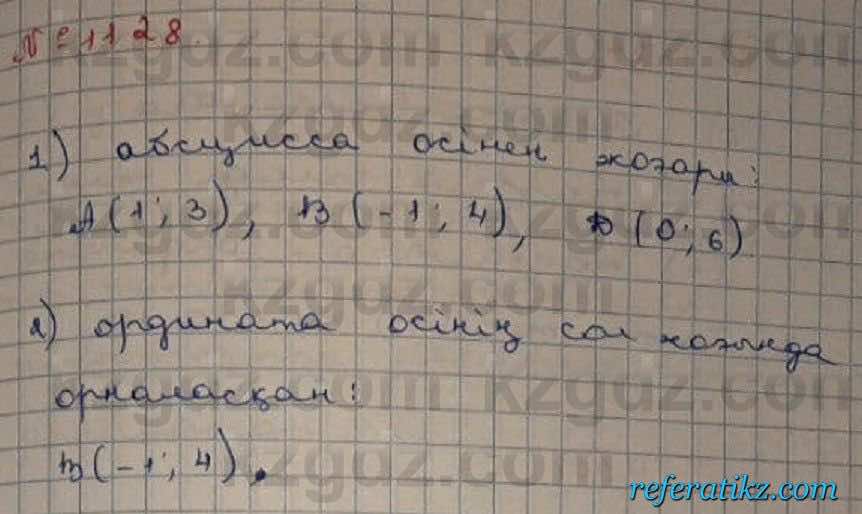 №1128.
1) абсцисса осінен жоғары:
A(1; 3), B(-1; 4), D(0; 6)
2) ордината осінің сол жағында
орналасқан:
B(-1; 4).
referatikz.com